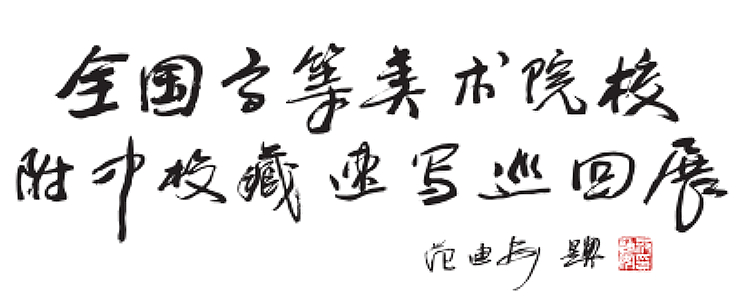 全国高等美术院校
附中校藏速写巡回展
范迪安 题